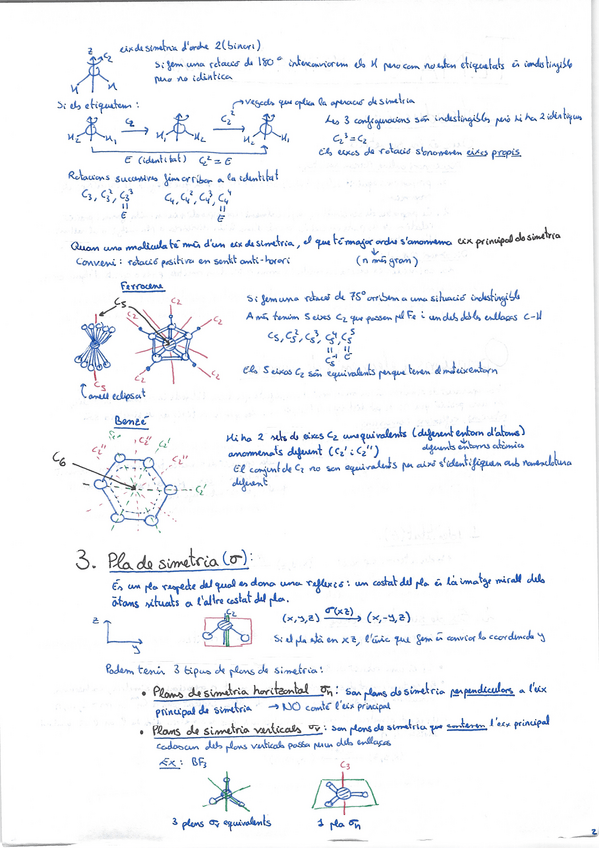 eix de simetria d'ordre 2 (binari)
z
C2
H H
Si fem una rotació de 180° intercanviarem els H pero com no estan etiquetats és indestingible
pero no idèntica
Si els etiquetem:
C2
C2²
→ vegades que aplica la operació de simetria
H2 H1 H1 H2 H2 H1
E (identitat) C2² = E
Les 3 configuracions són indestingibles però hi ha 2 idèntiques
C2³ = C2
Els eixos de rotació s'anomenen eixos propis
Rotacions successives fins arribar a la identitat
C3, C3², C3³
C4, C4², C4³, C4⁴
= E
= E
Quan una molècula té més d'un eix de simetria, el que té major ordre s'anomena eix principal de simetria
Conveni: rotació positiva en sentit anti-horari
(n més gran)
Ferrocene
C5
C2 C2 C2 C2 C2
C5
anell eclipsat
Si fem una rotació de 75° arribem a una situació indestingible
A més tenim 5 eixos C2 que passen pel Fe i un dels dobles enllaços C-H
C5, C5², C5³, C5⁴, C5⁵
= C5⁻¹ = E
Els 5 eixos C2 són equivalents perque tenen el mateix entorn
Benzé
C6
C2'' C2'' C2' C2'' C2'
Hi ha 2 sets de eixos C2 inequivalents (diferent entorn d'àtoms)
anomenats diferent (C2' i C2'') diferents entorns atòmics
El conjunt de C2 no son equivalents per això s'identifiquen amb nomenclatura
diferent
3. Pla de simetria (σ):
És un pla respecte del qual es dona una reflexió: un costat del pla és la imatge mirall dels
àtoms situats a l'altre costat del pla.
z
y
C2
(x,y,z) σ(xz) → (x,-y,z)
Si el pla està en xz, l'únic que fem és canviar la coordenada y
Podem tenir 3 tipus de plans de simetria:
• Plans de simetria horitzontal σh: son plans de simetria perpendiculars a l'eix
principal de simetria → NO conté l'eix principal
• Plans de simetria verticals σv: son plans de simetria que contenen l'eix principal
cadascun dels plans verticals passa per un dels enllaços
Ex: BF3
C3
3 plans σv equivalents
1 pla σh
2